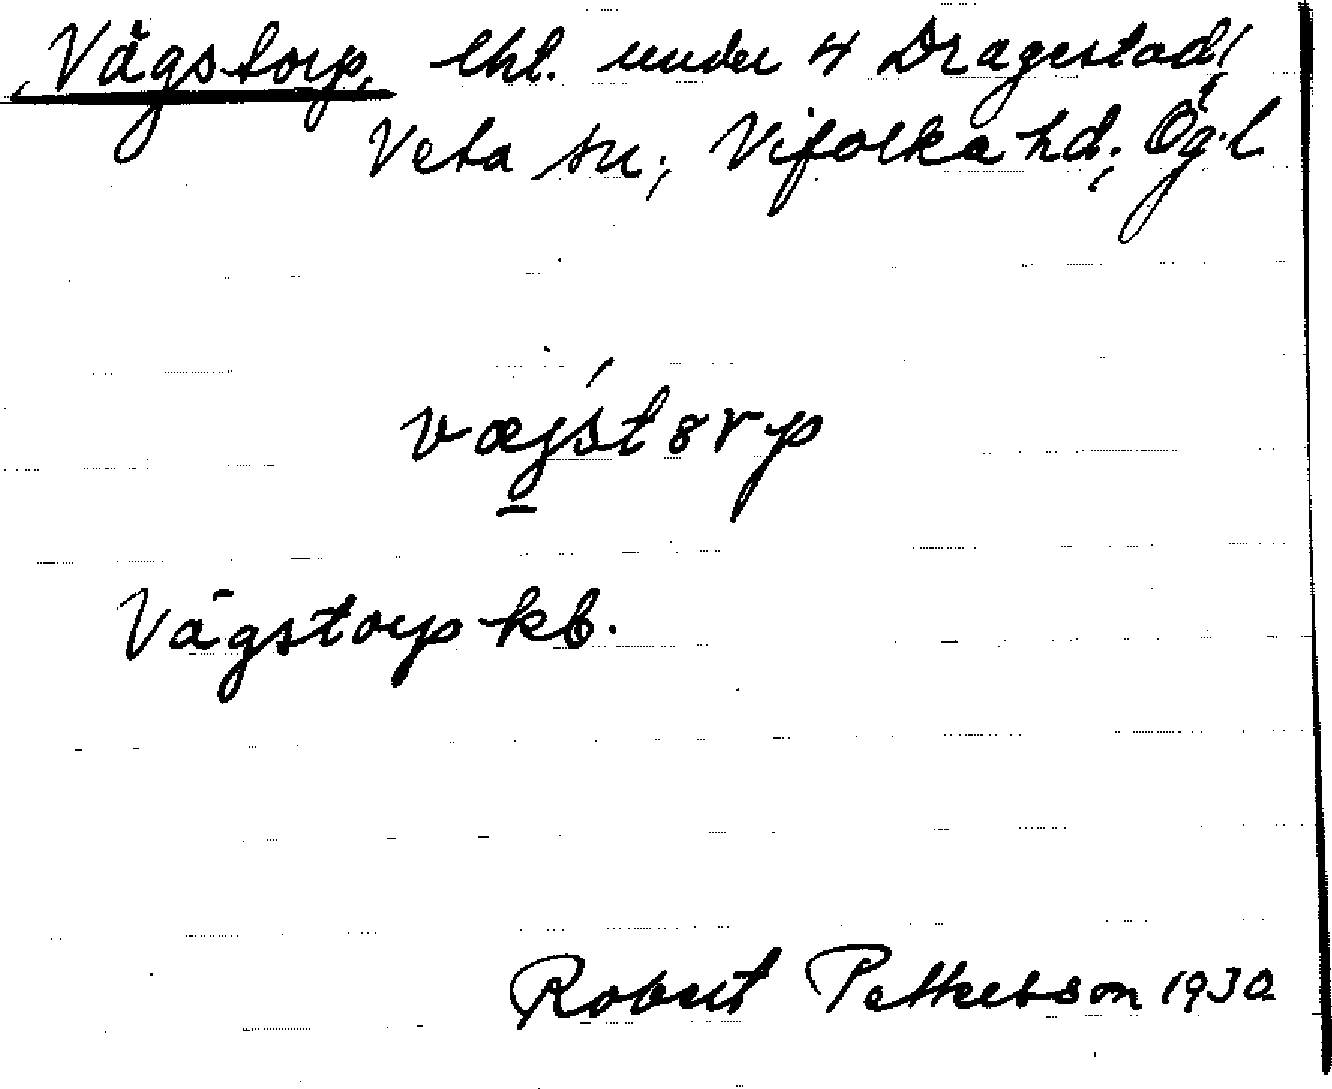 Vägstorp, lht. under 4 Dragestad,
Veta sn, Vifolka hd, Ög.l
væjstorp
Vägstorp kb.
Robert Pettersson 1930